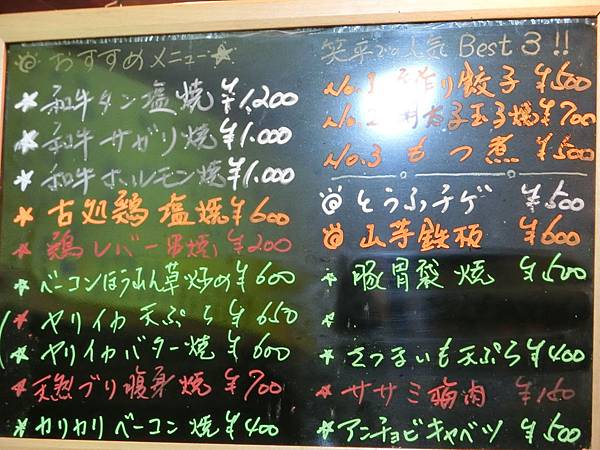 ◎おすすめメニュー★
★和牛タン塩焼¥1,200
★和牛サガリ焼¥1,000
★和牛ホルモン焼¥1,000
★古処鶏塩焼¥600
★鶏レバー串焼¥200
★ベーコンほうれん草炒め¥600
★ヤリイカ天ぷら¥650
★ヤリイカバター焼¥600
★天然ブリ腹身焼¥700
★カリカリベーコン焼¥400
笑来での人気Best3!!
No.1手作り餃子¥500
No.2明太子玉子焼¥700
No.3もつ煮¥500
◎とうふチゲ¥500
◎山芋鉄板¥600
★豚胃袋焼¥500
★
★さつまいも天ぷら¥400
★ササミ梅肉¥180
★アンチョビキャベツ¥500